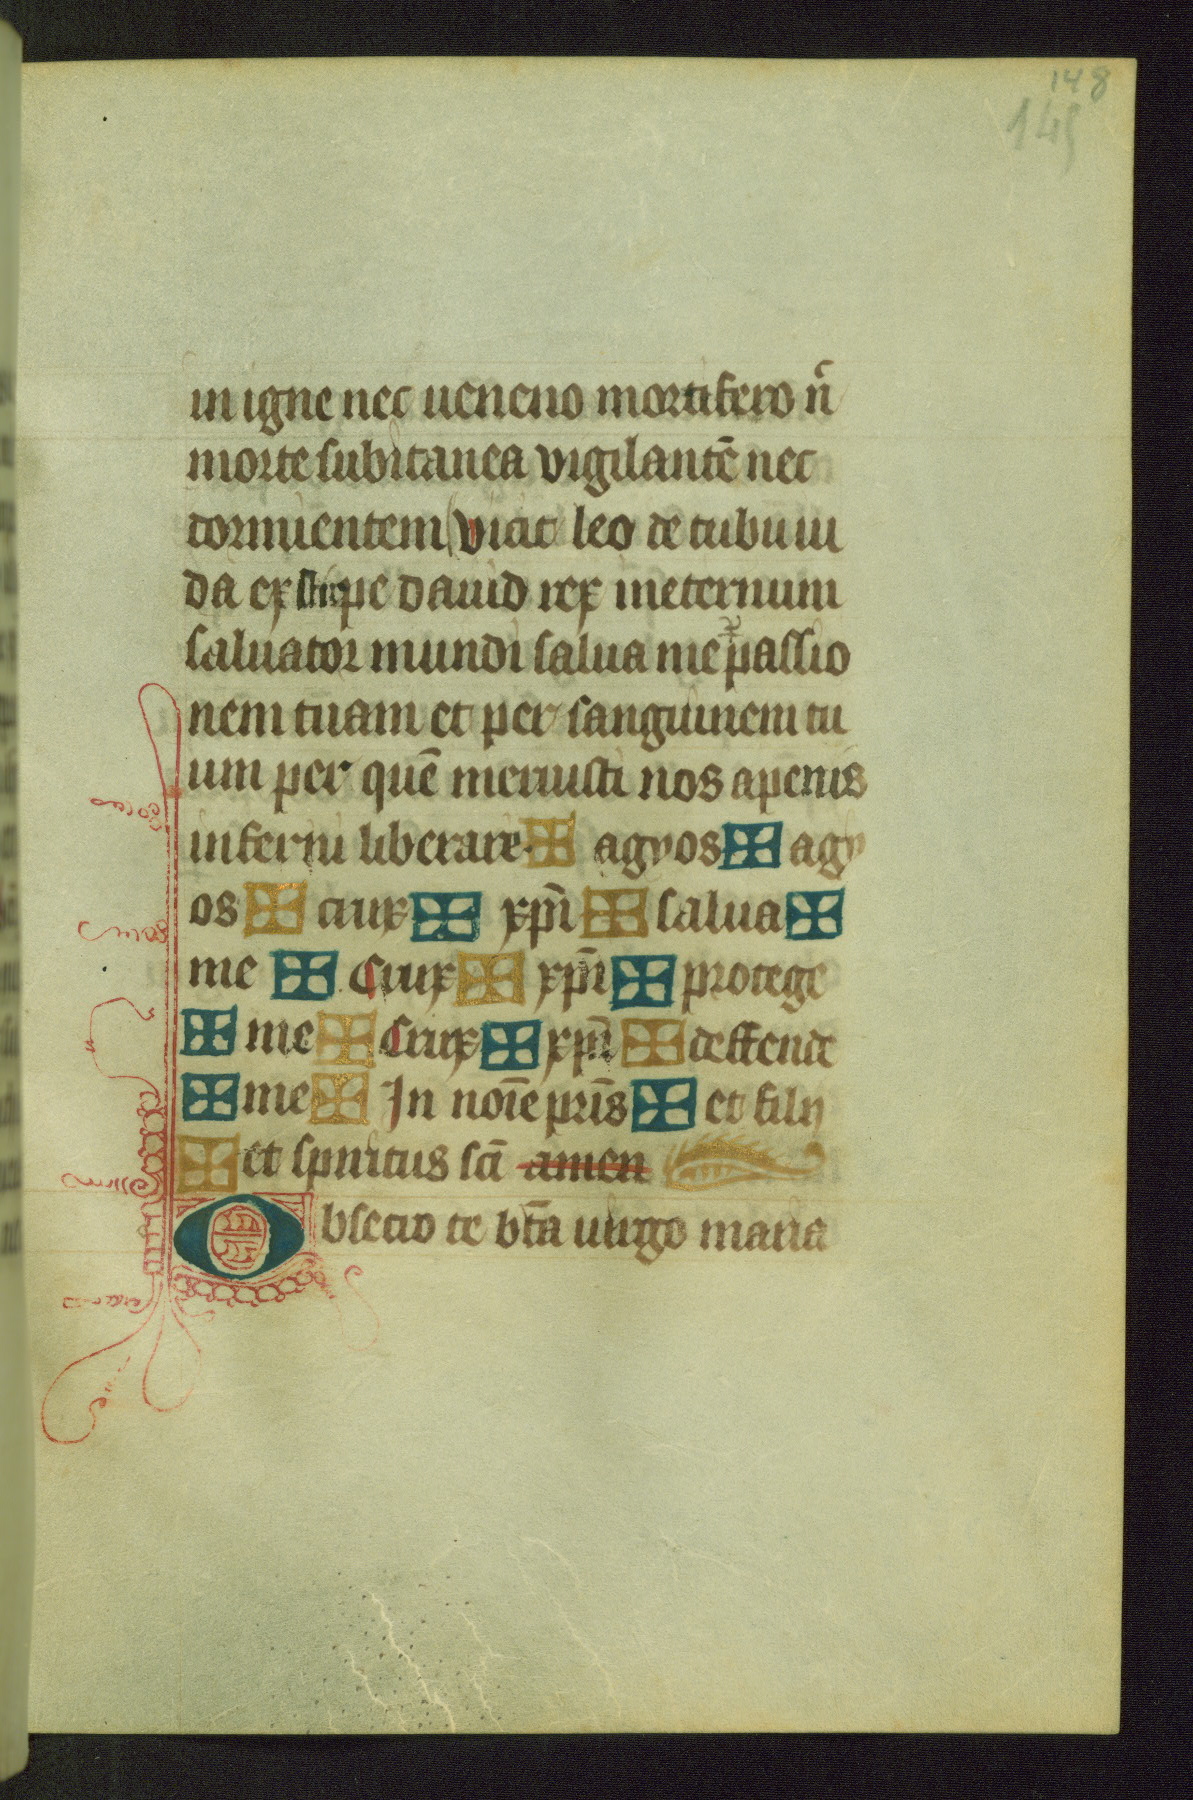 148
145
in igne nec ueneno mortifero n̄
morte subitanea vigilantē nec
dormientem vicit leo de tribu iu
da ex stirpe dauid rex ineternum
saluator mundi salua me p̄ passio
nem tuam et per sanguinem tu
um per quē meruisti nos apenis
inferni liberare ✠ agyos ✠ agy
os ✠ crux ✠ xp̄i ✠ salua ✠
me ✠ Crux ✠ xp̄i ✠ protege
✠ me ✠ Crux ✠ xp̄i ✠ deffende
✠ me ✠ In noīe pr̄is ✠ et filij
✠ et spiritus sc̄i amen
Obsecro te bt̄a uirgo maria